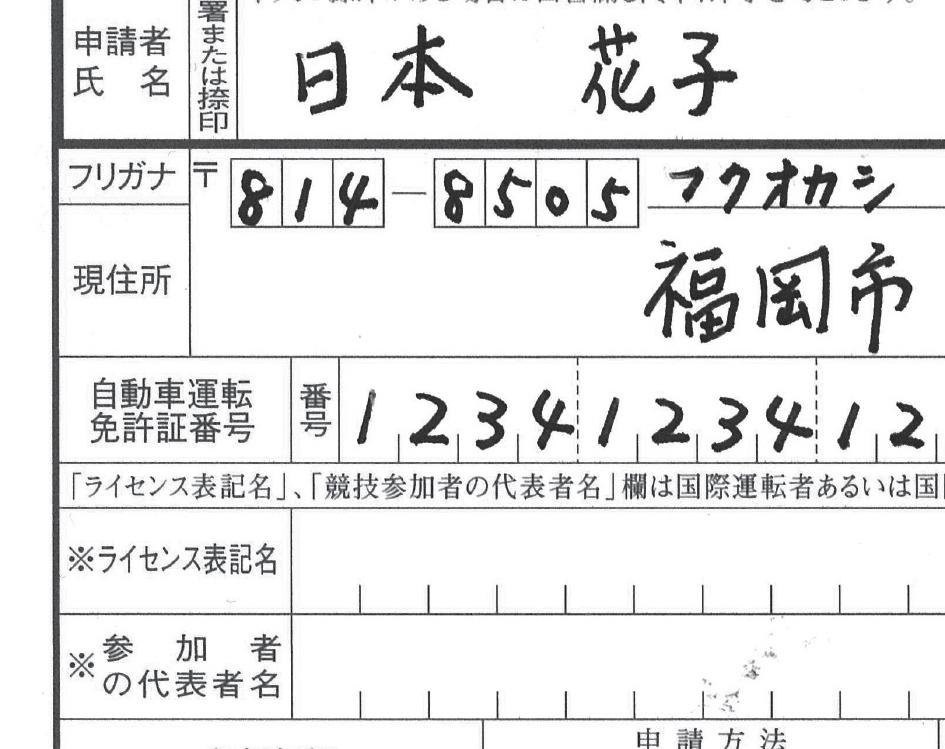 申請者
氏名
署または捺印
日本 花子
フリガナ
〒 814-8505 フクオカシ
現住所
福岡市
自動車運転
免許証番号
番号
1234123412
「ライセンス表記名」、「競技参加者の代表者名」欄は国際運転者あるいは国
※ライセンス表記名
※参加者
の代表者名
申請方法